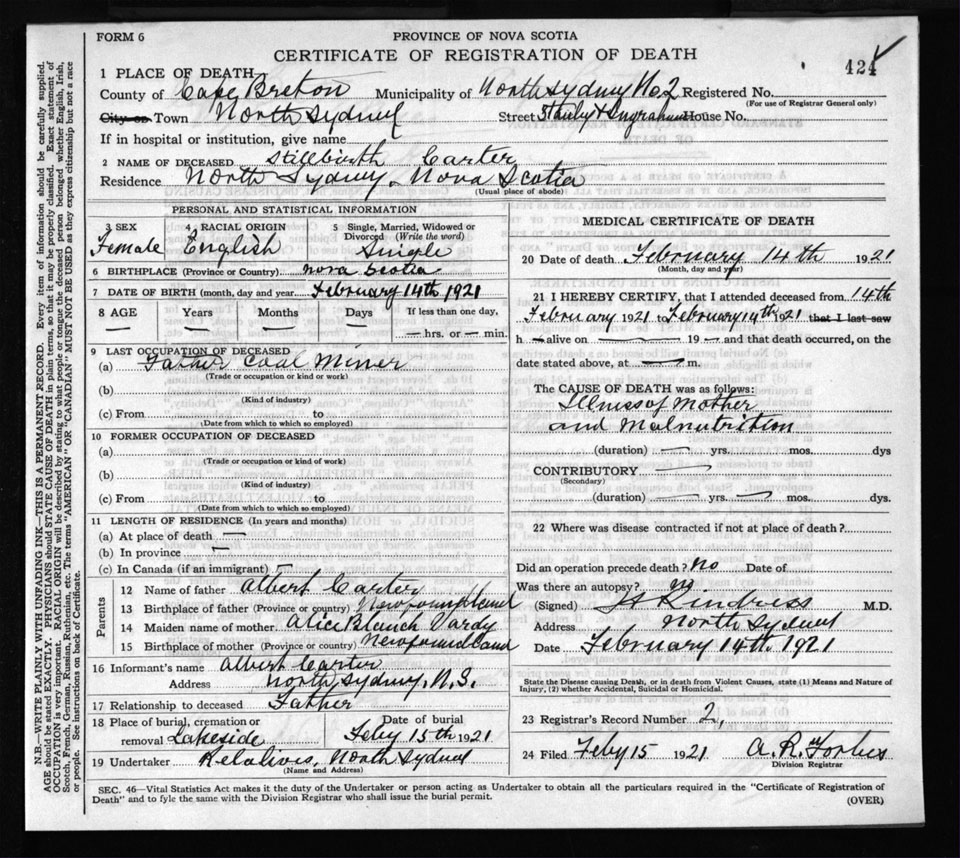 FORM 6
PROVINCE OF NOVA SCOTIA
CERTIFICATE OF REGISTRATION OF DEATH
424
1 PLACE OF DEATH
County of Cape Breton Municipality of North Sydney No. 2 Registered No.
(For use of Registrar General only)
City or Town North Sydney Street Stanley & Ingraham House No.
If in hospital or institution, give name
2 NAME OF DECEASED Stillbirth Carter
Residence North Sydney, Nova Scotia
(Usual place of abode)
PERSONAL AND STATISTICAL INFORMATION
3 SEX 4 RACIAL ORIGIN 5 Single, Married, Widowed or Divorced (Write the word)
Female English Single
6 BIRTHPLACE (Province or Country) Nova Scotia
7 DATE OF BIRTH (month, day and year) February 14th 1921
8 AGE Years Months Days If less than one day,
— — — — hrs. or — min.
9 LAST OCCUPATION OF DECEASED
(a) Father Coal Miner
(Trade or occupation or kind or work)
(b)
(Kind of industry)
(c) From to
(Date from which to which so employed)
10 FORMER OCCUPATION OF DECEASED
(a)
(Trade or occupation or kind or work)
(b)
(Kind of industry)
(c) From to
(Date from which to which so employed)
11 LENGTH OF RESIDENCE (In years and months)
(a) At place of death —
(b) In province —
(c) In Canada (if an immigrant) —
Parents
12 Name of father Albert Carter
13 Birthplace of father (Province or country) Newfoundland
14 Maiden name of mother Alice Blanch Vardy
15 Birthplace of mother (Province or country) Newfoundland
16 Informant's name Albert Carter
Address North Sydney, N.S.
17 Relationship to deceased Father
18 Place of burial, cremation or removal Lakeside Date of burial Feby 15th 1921
19 Undertaker Relations, North Sydney
(Name and Address)
MEDICAL CERTIFICATE OF DEATH
20 Date of death February 14th 1921
(Month, day and year)
21 I HEREBY CERTIFY, that I attended deceased from 14th
February 1921 to February 14th 1921 that I last saw
h — alive on — 19 — and that death occurred, on the
date stated above, at — m.
The CAUSE OF DEATH was as follows:
Illness of Mother
and Malnutrition
(duration) — yrs. — mos. dys
CONTRIBUTORY —
(Secondary)
(duration) — yrs. — mos. — dys.
22 Where was disease contracted if not at place of death?
Did an operation precede death? No Date of
Was there an autopsy? No
(Signed) Kindress M.D.
Address North Sydney
Date February 14th 1921
State the Disease causing Death, or in death from Violent Causes, state (1) Means and Nature of
Injury, (2) whether Accidental, Suicidal or Homicidal.
23 Registrar's Record Number 2,
24 Filed Feby 15 1921 A. R. Forbes
Division Registrar
SEC. 46—Vital Statistics Act makes it the duty of the Undertaker or person acting as Undertaker to obtain all the particulars required in the "Certificate of Registration of
Death" and to fyle the same with the Division Registrar who shall issue the burial permit.
(OVER)
N.B.—WRITE PLAINLY WITH UNFADING INK—THIS IS A PERMANENT RECORD. Every item of information should be carefully supplied.
AGE should be stated EXACTLY. PHYSICIANS should STATE CAUSE OF DEATH in plain terms, so that it may be properly classified. Exact statement of
OCCUPATION is very important. RACIAL ORIGIN will be described by stating to what people or tongue the deceased person belonged whether English, Irish,
Scotch, French, German, Russian, Ruthenian, etc. The terms "AMERICAN" OR "CANADIAN" MUST NOT BE USED as they express citizenship but not a race
or people. See instructions on back of Certificate.